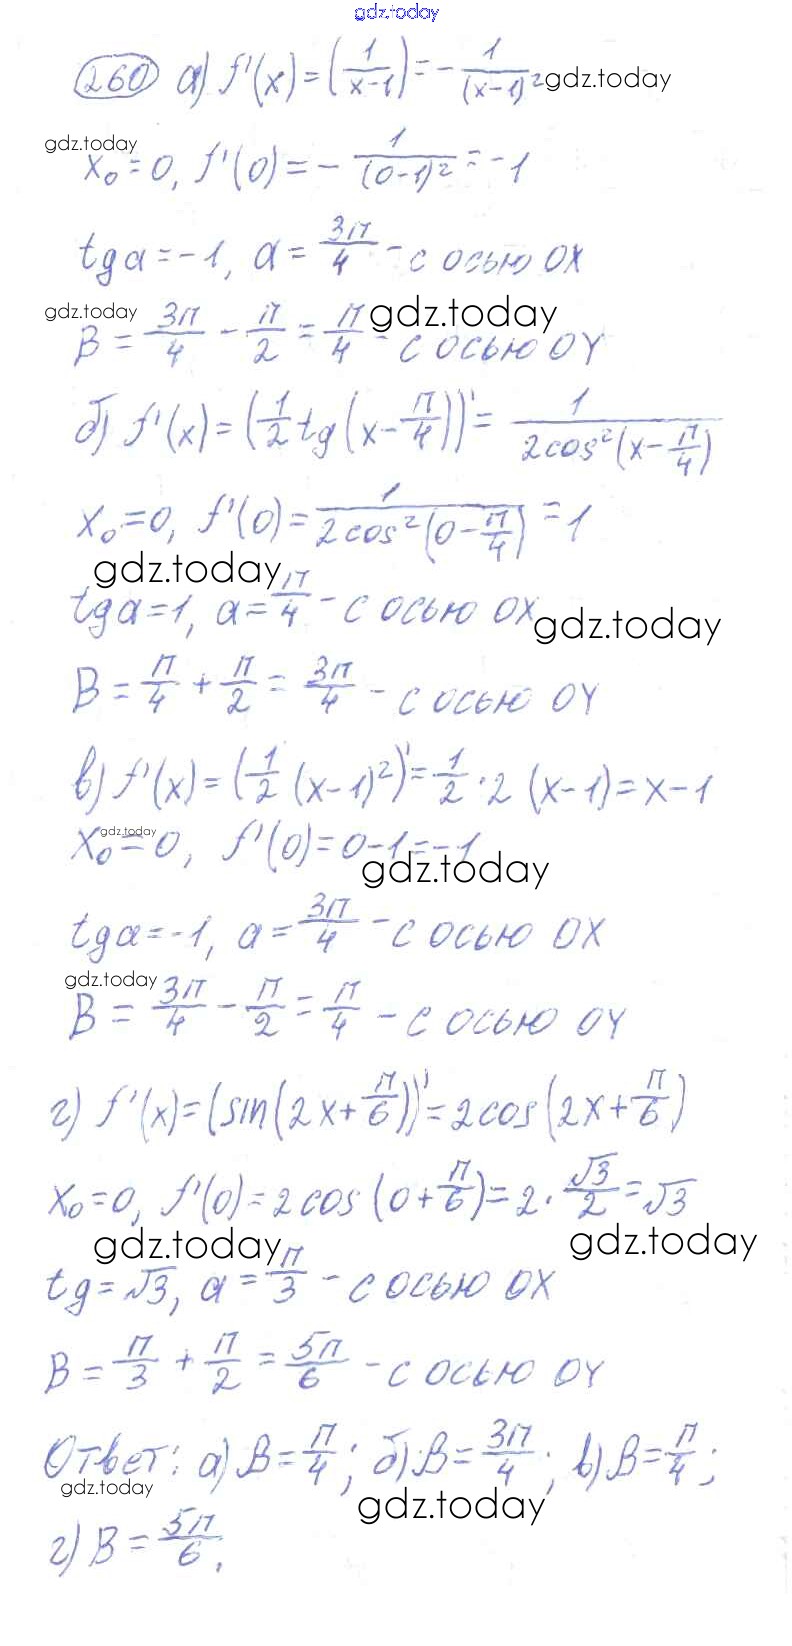 gdz.today
260 а) f'(x) = (1/(x-1)) = -1/(x-1)² gdz.today
gdz.today
x₀ = 0, f'(0) = -1/(0-1)² = -1
tg a = -1, a = 3π/4 - с осью OX
gdz.today gdz.today
B = 3π/4 - π/2 = π/4 - с осью OY
б) f'(x) = (1/2 tg(x - π/4))' = 1/(2cos²(x - π/4))
x₀ = 0, f'(0) = 1/(2cos²(0 - π/4)) = 1
gdz.today
tg a = 1, a = π/4 - с осью OX
gdz.today
B = π/4 + π/2 = 3π/4 - с осью OY
в) f'(x) = (1/2 (x-1)²)' = 1/2 · 2 (x-1) = x-1
gdz.today
x₀ = 0, f'(0) = 0-1 = -1
gdz.today
tg a = -1, a = 3π/4 - с осью OX
gdz.today
B = 3π/4 - π/2 = π/4 - с осью OY
г) f'(x) = (sin(2x + π/6))' = 2cos(2x + π/6)
x₀ = 0, f'(0) = 2cos(0 + π/6) = 2 · √3/2 = √3
gdz.today gdz.today
tg = √3, a = π/3 - с осью OX
B = π/3 + π/2 = 5π/6 - с осью OY
Ответ: а) B = π/4; б) B = 3π/4; в) B = π/4;
gdz.today gdz.today
г) B = 5π/6;